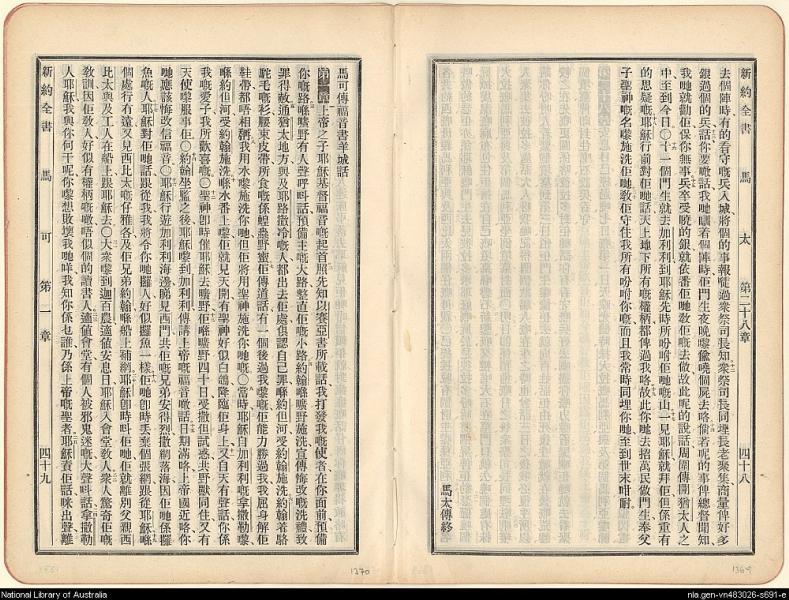 新約全書 馬 太 第二十八章 四十八
去個陣時有的看守嘅兵入城將個的事報嘥過衆祭司長知衆祭司長同埋長老聚集商量俾好多
銀過個的兵話你要噉話我哋瞓着個陣時佢門生夜晚嚟偷嘵個屍去咯倘若呢的事俾總督聞知
我哋就勸佢保你無事兵卒受曉的銀就依番佢哋敎佢嘅去做故此呢的說話周圍傳開猶太人之
中至到今日〇十一個門生就去加利利到耶穌先時所吩咐佢哋嘅山一見耶穌就拜佢但係重有
的思疑嘅耶穌行前對佢哋話天上地下所有嘅權柄都俾過我咯故此你哋去招萬民做門生奉父
子聖神嘅名嚟施洗佢哋敎佢守住我所有吩咐你嘅而且我常時同埋你哋至到世末咁耐
馬太傳終
馬可傳福音書羊城話
上帝之子耶穌基督福音嘅起首照先知以賽亞書所載話我打發我嘅使者在你面前預備
你嘅路喺曠野有人聲呼呌話預備主嘅大路整直佢嘅小路約翰喺曠野施洗宣傳悔改嘅洗禮致
罪得赦通猶太地方與及耶路撒冷嘅人都出去佢處俱認自己罪喺約但河受約翰施洗約翰着駱
駝毛嘅衫腰束皮帶所食嘅係蝗蟲野蜜佢傳道話有一個後過我嚟嘅佢能力勝過我我屈身解佢
鞋帶都唔相稱我用水嚟施洗你哋但佢將用聖神施洗你哋嘅〇當時耶穌自加利利嘅拿撒勒嚟
喺約但河受約翰施洗喺水番上嚟佢就見天開有聖神好似白鴿降臨佢身上又自天有聲話你係
我嘅愛子我所歡喜嘅〇聖神卽時催耶穌去曠野佢喺曠野四十日受撒但試惑共野獸同住又有
天使嚟服事佢〇約翰坐監之後耶穌嚟到加利利傳講上帝嘅福音噉話日期滿咯上帝國近咯你
哋應該悔改信福音〇耶穌行遊加利利海邊睇見西門共佢嘅兄弟安得烈撒網落海因佢哋係攞
魚嘅人耶穌對佢哋話跟從我我將令你哋攞人好似攞魚一樣佢哋卽時丢棄個張網跟從耶穌喺
個處行有遠又見西比太嘅仔雅各及佢兄弟約翰喺船上補網耶穌卽時呌佢哋佢就離別父親西
比太與及工人在船上跟耶穌去〇大衆嚟到迦百農適値安息日耶穌入會堂敎人衆人驚奇佢嘅
敎訓因佢敎人好似有權柄嘅噉唔似個的讀書人適値會堂有個人被邪鬼迷嘅大聲呌話拿撒勒
人耶穌我與你何干呢你嚟想敗壞我哋咩我知你係乜誰乃係上帝嘅聖者耶穌責佢話咪出聲離
新約全書 馬 可 第一章 四十九
1370
1369
National Library of Australia
nla.gen-vn483026-s691-e